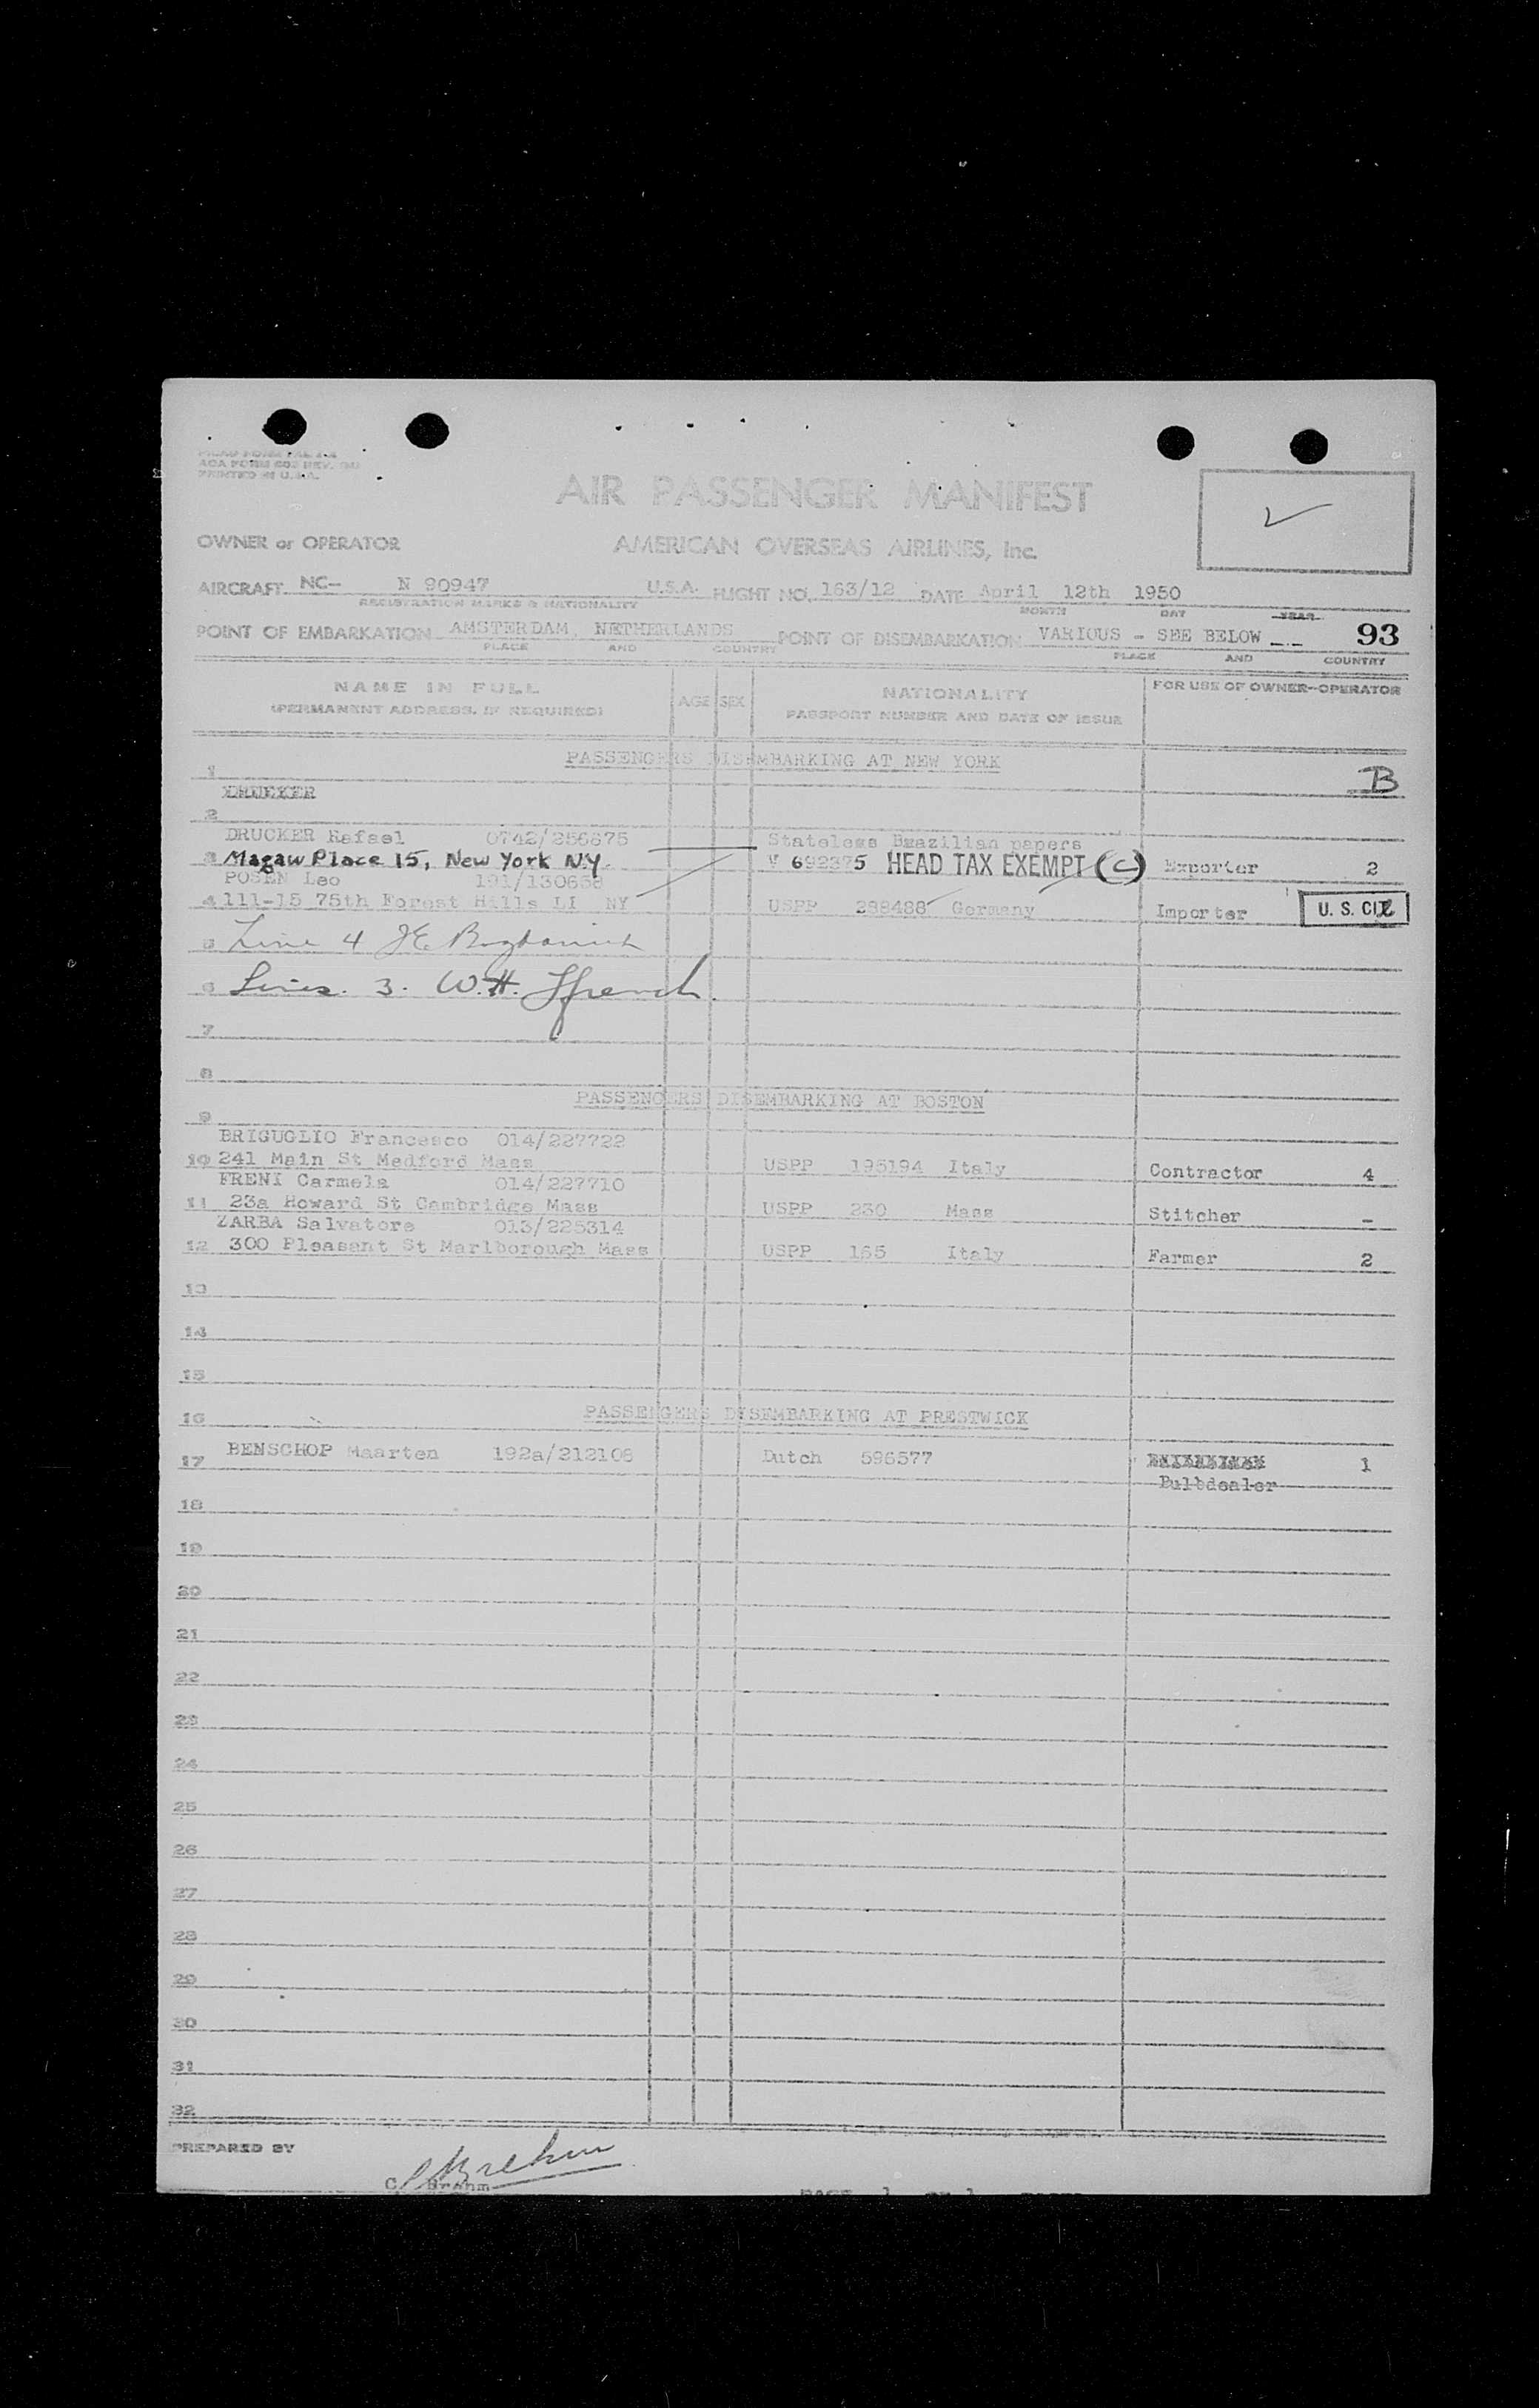 ACA FORM 602 REV.
PRINTED IN U.S.A.
AIR PASSENGER MANIFEST
OWNER or OPERATOR AMERICAN OVERSEAS AIRLINES, Inc.
AIRCRAFT NC-- N 90947 U.S.A. FLIGHT NO. 163/12 DATE April 12th 1950
REGISTRATION MARKS & NATIONALITY MONTH DAY YEAR
POINT OF EMBARKATION AMSTERDAM, NETHERLANDS POINT OF DISEMBARKATION VARIOUS - SEE BELOW 93
PLACE AND COUNTRY PLACE AND COUNTRY
NAME IN FULL AGE SEX NATIONALITY FOR USE OF OWNER-OPERATOR
(PERMANENT ADDRESS, IF REQUIRED) PASSPORT NUMBER AND DATE OF ISSUE
PASSENGERS DISEMBARKING AT NEW YORK
1 B
2
DRUCKER Rafael 0742/256875 Stateless Brazilian papers
3 Magaw Place 15, New York NY. V 692375 HEAD TAX EXEMPT (C) Exporter 2
POSEN Leo 191/130658
4 111-15 75th Forest Hills LI NY USPP 288488 Germany Importer U. S. CIZ
5 Line 4 J E
6 Lines. 3. W. H. Ffrench.
7
8
PASSENGERS DISEMBARKING AT BOSTON
9
BRIGUGLIO Francesco 014/227722
10 241 Main St Medford Mass USPP 195194 Italy Contractor 4
FRENI Carmela 014/227710
11 23a Howard St Cambridge Mass USPP 230 Mass Stitcher -
ZARBA Salvatore 013/225314
12 300 Pleasant St Marlborough Mass USPP 165 Italy Farmer 2
13
14
15
16 PASSENGERS DISEMBARKING AT PRESTWICK
17 BENSCHOP Maarten 192a/212108 Dutch 596577 1
Bulbdealer
18
19
20
21
22
23
24
25
26
27
28
29
30
31
32
PREPARED BY
C. Brehm
PAGE 1 OF 1